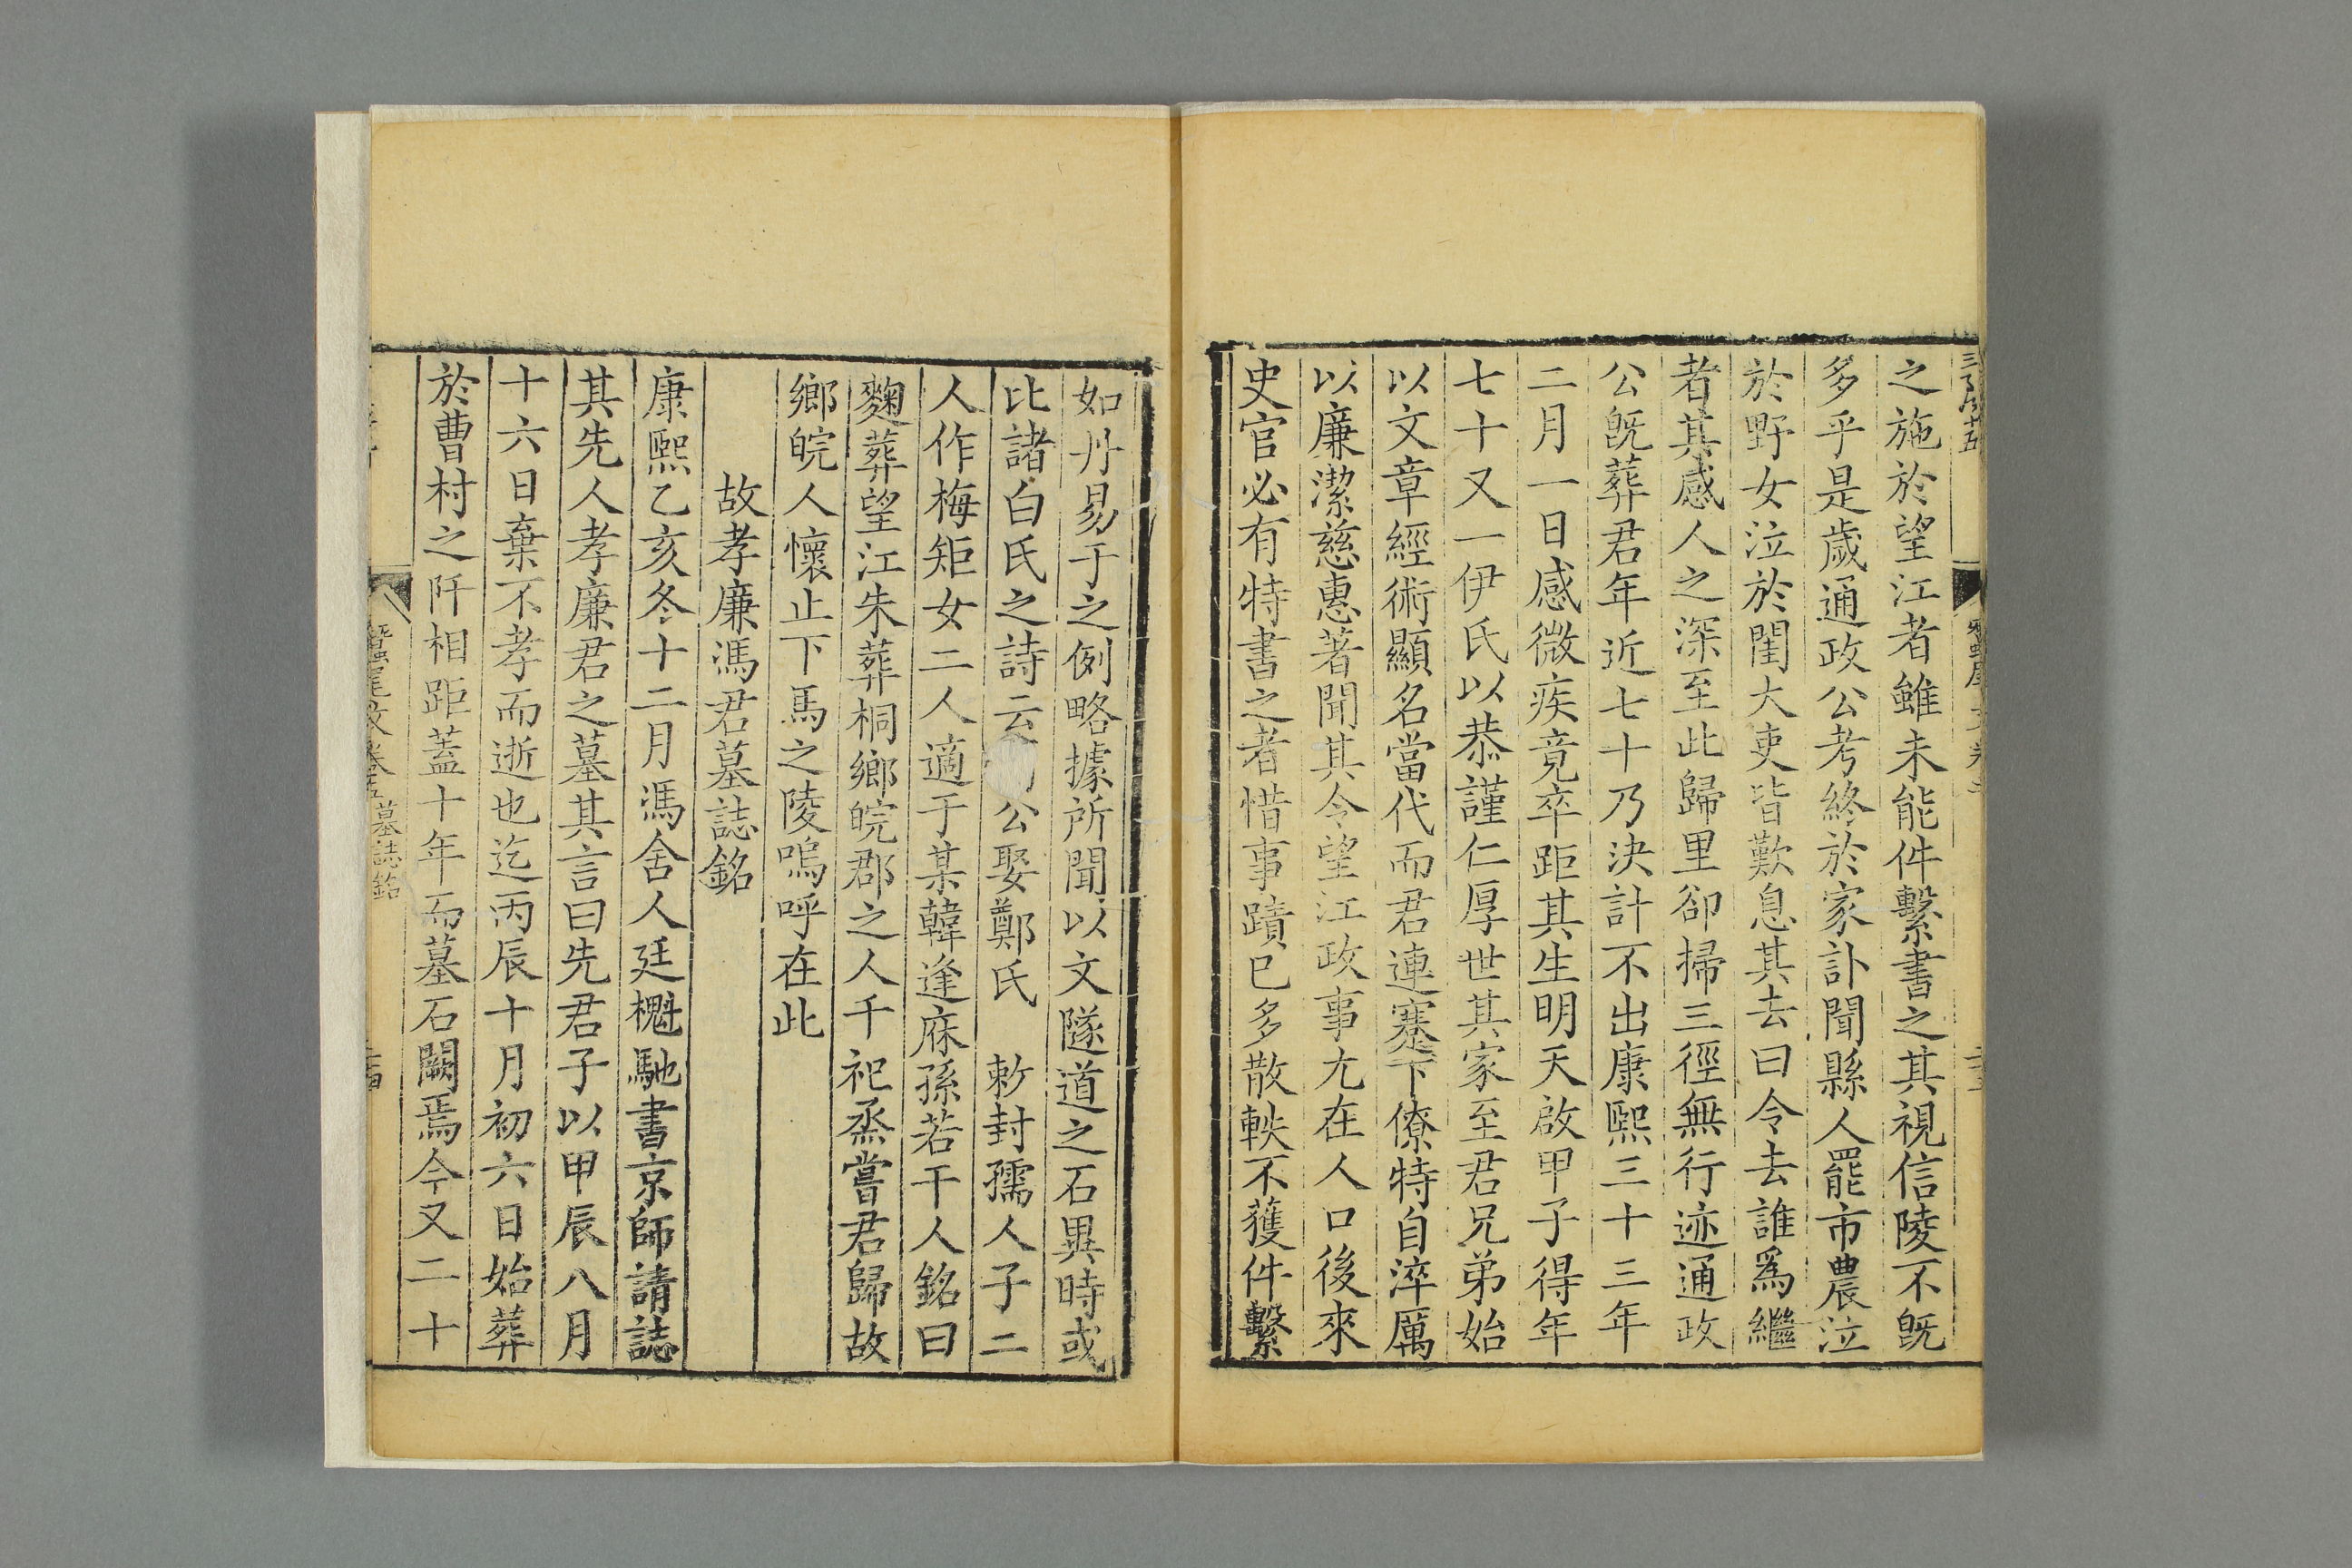 之施於望江者雖未能件繫書之其視信陵不旣
多乎是歲通政公考終於家訃聞縣人罷市農泣
於野女泣於閨大吏皆歎息其去曰令去誰爲繼
者其感人之深至此歸里卻掃三徑無行迹通政
公旣葬君年近七十乃決計不出康熙三十三年
二月一日感微疾竟卒距其生明天啟甲子得年
七十又一伊氏以恭謹仁厚世其家至君兄弟始
以文章經術顯名當代而君連蹇下僚特自淬厲
以廉潔慈惠著聞其令望江政事尤在人口後來
史官必有特書之者惜事蹟已多散軼不獲件繫
如丹易于之例略據所聞以文隧道之石異時或
比諸白氏之詩云公娶鄭氏 敕封孺人子二
人作梅矩女二人適于某韓逢庥孫若干人銘曰
麴葬望江朱葬桐鄉皖郡之人千祀烝嘗君歸故
鄉皖人懷止下馬之陵嗚呼在此
故孝廉馮君墓誌銘
康熙乙亥冬十二月馮舍人廷櫆馳書京師請誌
其先人孝廉君之墓其言曰先君子以甲辰八月
十六日棄不孝而逝也迄丙辰十月初六日始葬
於曹村之阡相距蓋十年而墓石闕焉今又二十
蠶尾文卷五 墓誌銘